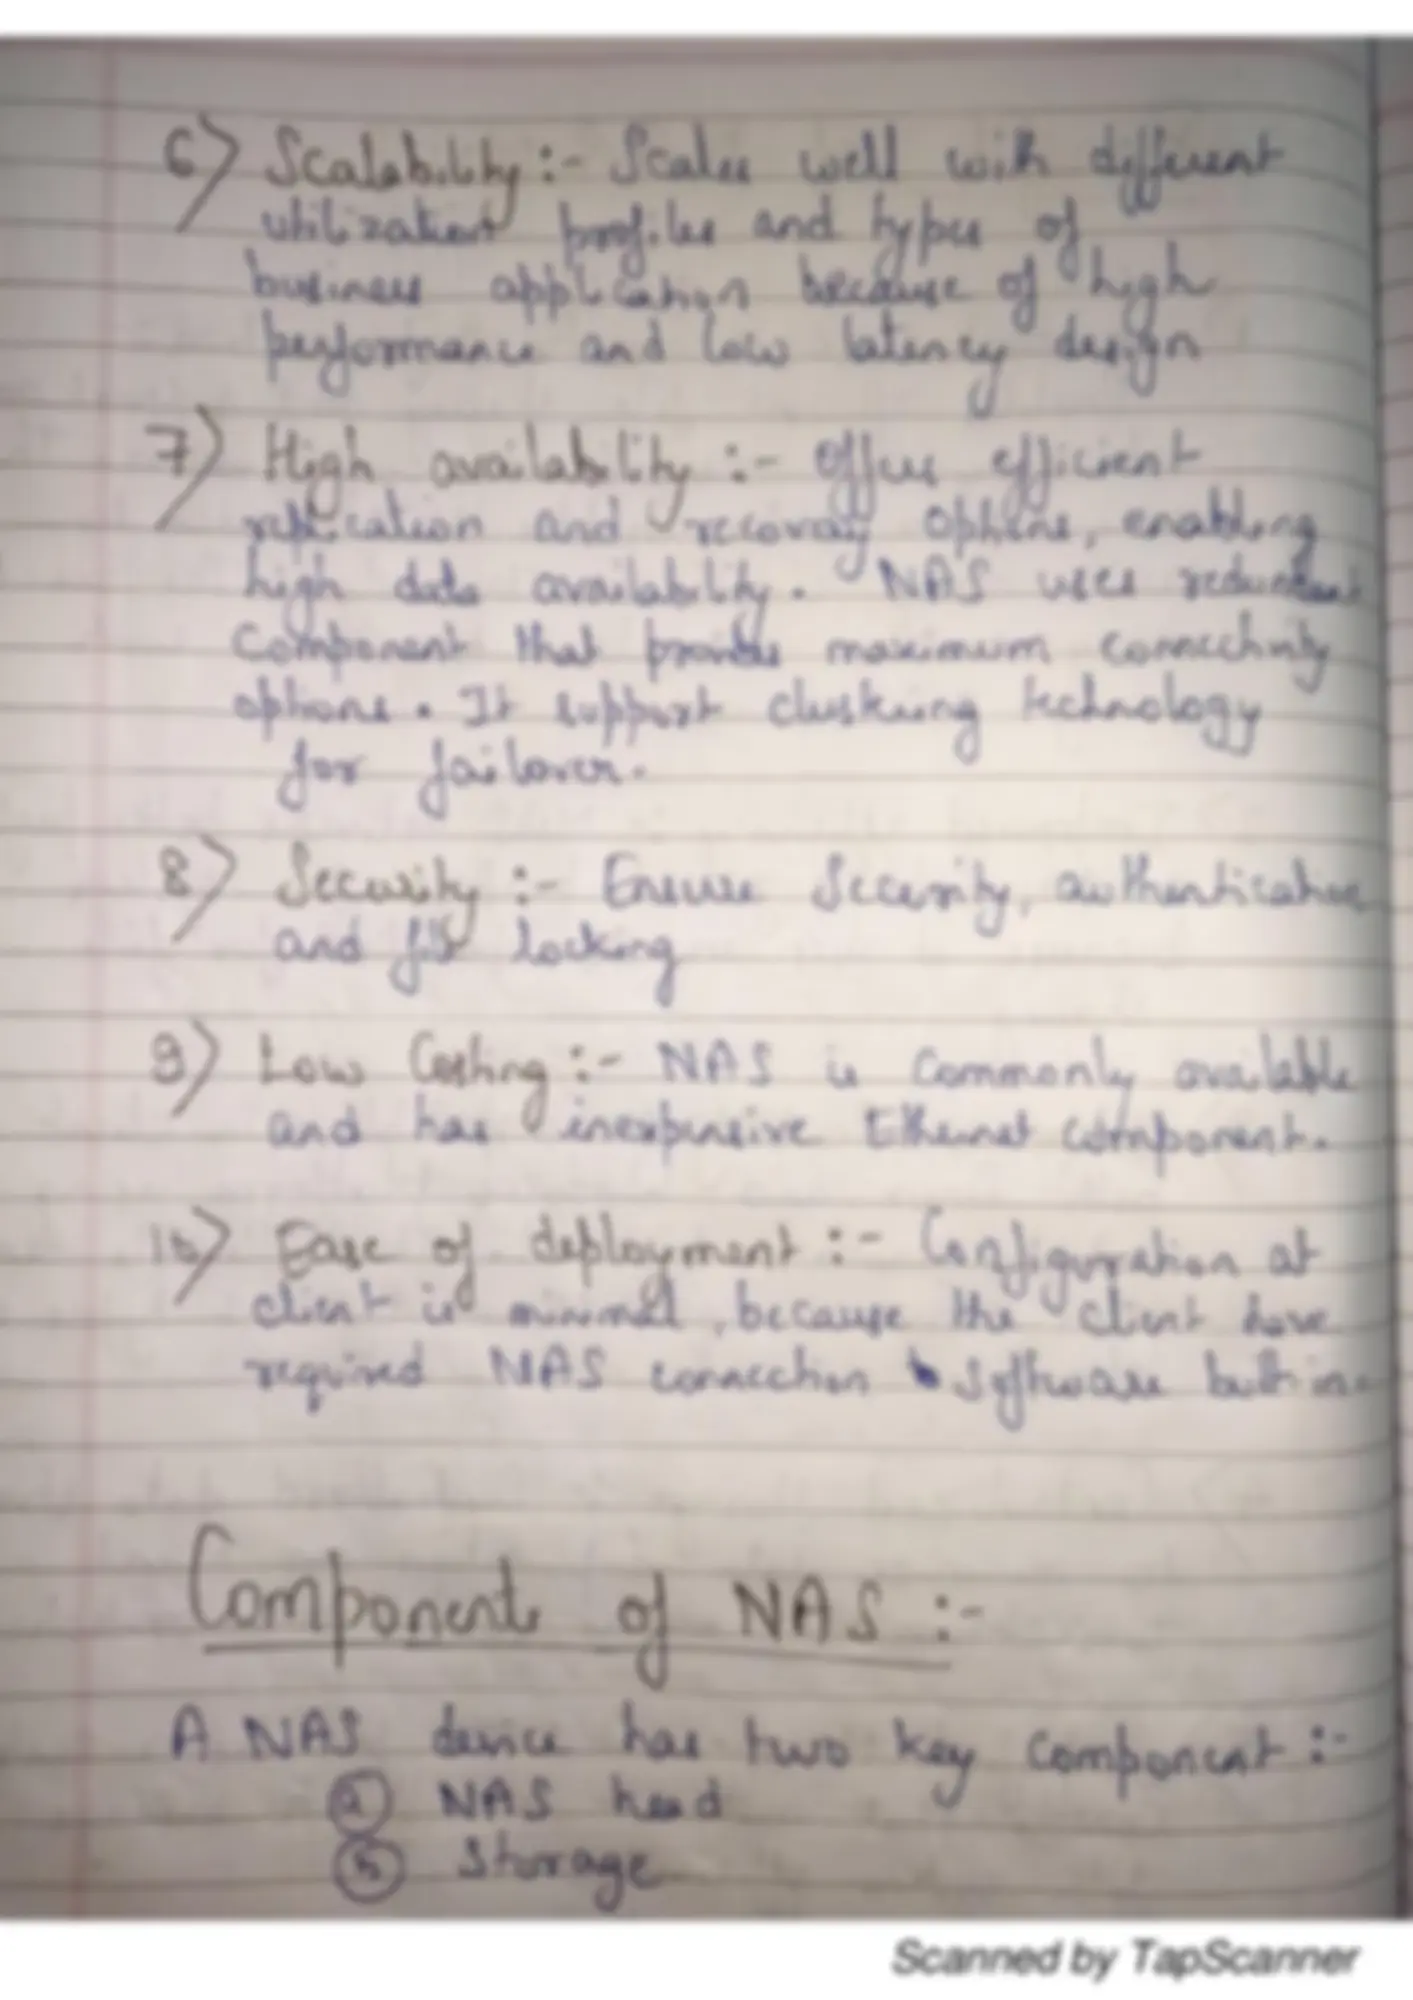 6) Scalability :- Scales well with different
utilization profiles and types of
business application because of high
performance and low latency design
7) High availability :- Offers efficient
replication and recovery options, enabling
high data availability. NAS uses redundant
Component that provides maximum connectivity
options. It support clustering technology
for failover.
8) Security :- Ensure Security, authentication
and file locking
9) Low Costing :- NAS is commonly available
and has inexpensive Ethernet component.
10) Ease of deployment :- Configuration at
client is minimal, because the client have
required NAS connection software built in.
Components of NAS :-
A NAS device has two key component :-
a NAS head
b Storage
Scanned by TapScanner